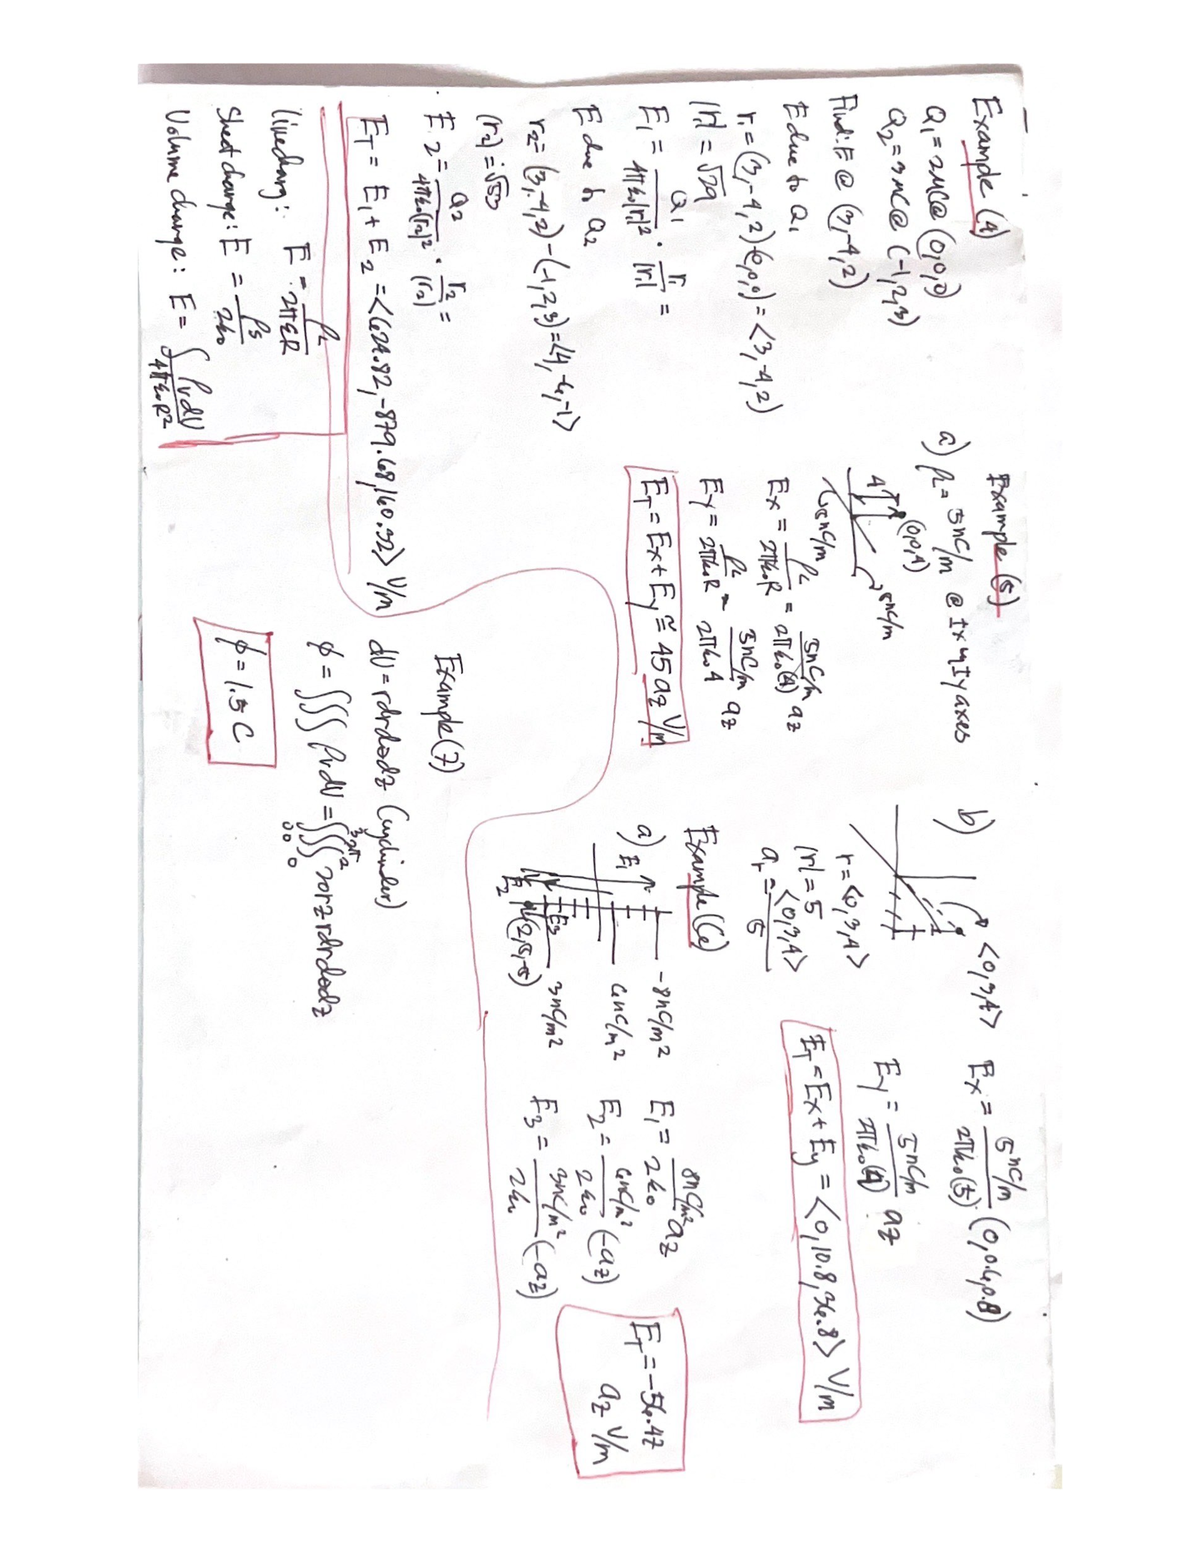 Example (4)
Q₁ = 2μC@ (0,0,0)
Q₂ = 3μC@ (-1,2,3)
Find: E @ (3,-4,2)
E due to Q₁
r₁ = (3,-4,2)-(0,0,0) = <3,-4,2>
|r₁| = √29
E₁ = Q₁/4πε₀|r₁|² · r₁/|r₁| =
E due to Q₂
r₂ = (3,-4,2)-(-1,2,3) = <4,-6,-1>
|r₂| = √53
E₂ = Q₂/4πε₀|r₂|² · r₂/|r₂| =
E_T = E₁ + E₂ = <624.82, -879.68, 160.32> V/m
E = ρL/2πεR
Sheet charge: E = ρs/2ε₀
Volume charge: E = ∫ρvdv/4πε₀R²
Example (5)
a) ρL = 5nC/m @ ±x y ±y axes
(0,0,4)
4
5nC/m
5nC/m
Ex = ρL/2πε₀R = 5nC/m/2πε₀(4) az
Ey = ρL/2πε₀R = 5nC/m/2πε₀4 az
E_T = Ex + Ey ≅ 45 az V/m
b)
<0,3,4>
r = <0,3,4>
|r| = 5
ar = <0,3,4>/5
Ex = 5nC/m/2πε₀(5) (0,0.6,0.8)
Ey = 5nC/m/2πε₀(4) az
E_T = Ex + Ey = <0,10.8,36.8> V/m
Example (6)
a) E₁
-8nC/m²
6nC/m²
3nC/m²
E₃
E₂
E₁ = 8nC/m²/2ε₀ az
E₂ = 6nC/m²/2ε₀ (-az)
E₃ = 3nC/m²/2ε₀ (-az)
E_T = -56.47
az V/m
Example (7)
dV = rdrdødz (cylinder)
ϕ = ∫∫∫ ρvdV =
ϕ = 1.5 C